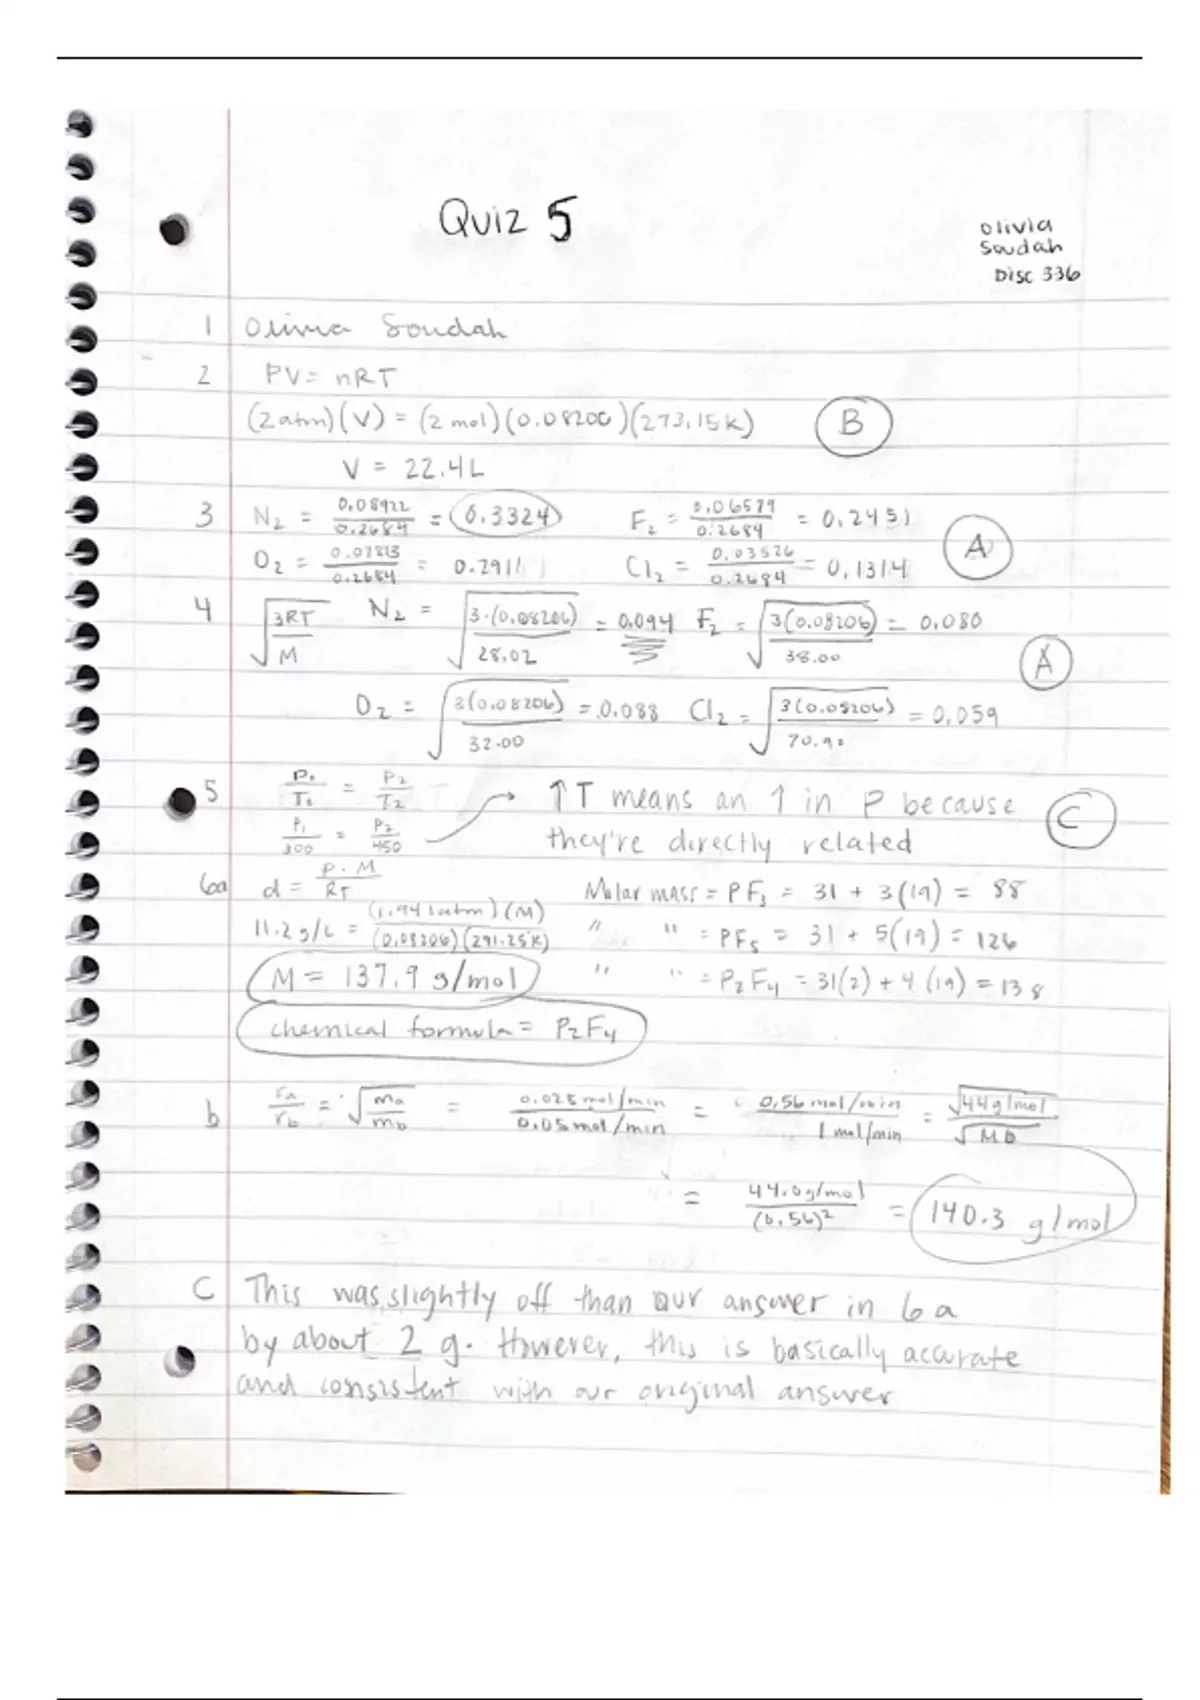 Quiz 5
Olivia
Soudah
Disc 336
1 Olivia Soudah
2 PV = nRT
(2 atm)(V) = (2 mol)(0.08206)(273.15K) B
V = 22.4L
3 N₂ = 0.08922/0.2684 = 0.3324 F₂ = 0.06579/0.2684 = 0.2451
A
O₂ = 0.07813/0.2684 = 0.2911 Cl₂ = 0.03526/0.2684 = 0.1314
4 √(3RT/M) N₂ = √(3·(0.08206)/28.02) = 0.094 F₂ = √(3(0.08206)/38.00) = 0.080
A
O₂ = √(3(0.08206)/32.00) = 0.088 Cl₂ = √(3(0.08206)/70.90) = 0.059
5 P₁/T₁ = P₂/T₂ → ↑T means an ↑ in P because C
P₁/300 = P₂/450 they're directly related
6a d = P·M/RT Molar mass = PF₃ = 31 + 3(19) = 88
11.2 g/L = (1.941 atm)(M)/(0.08206)(291.25K) " " = PF₅ = 31 + 5(19) = 126
M = 137.9 g/mol " " = P₂F₄ = 31(2) + 4(19) = 138
chemical formula = P₂F₄
b ra/rb = √(ma/mb) = 0.028 mol/min/0.05 mol/min = 0.56 mol/min/1 mol/min = √44 g/mol/√Mb
= 44.0 g/mol/(0.56)² = 140.3 g/mol
C This was slightly off than our answer in 6a
by about 2 g. However, this is basically accurate
and consistent with our original answer